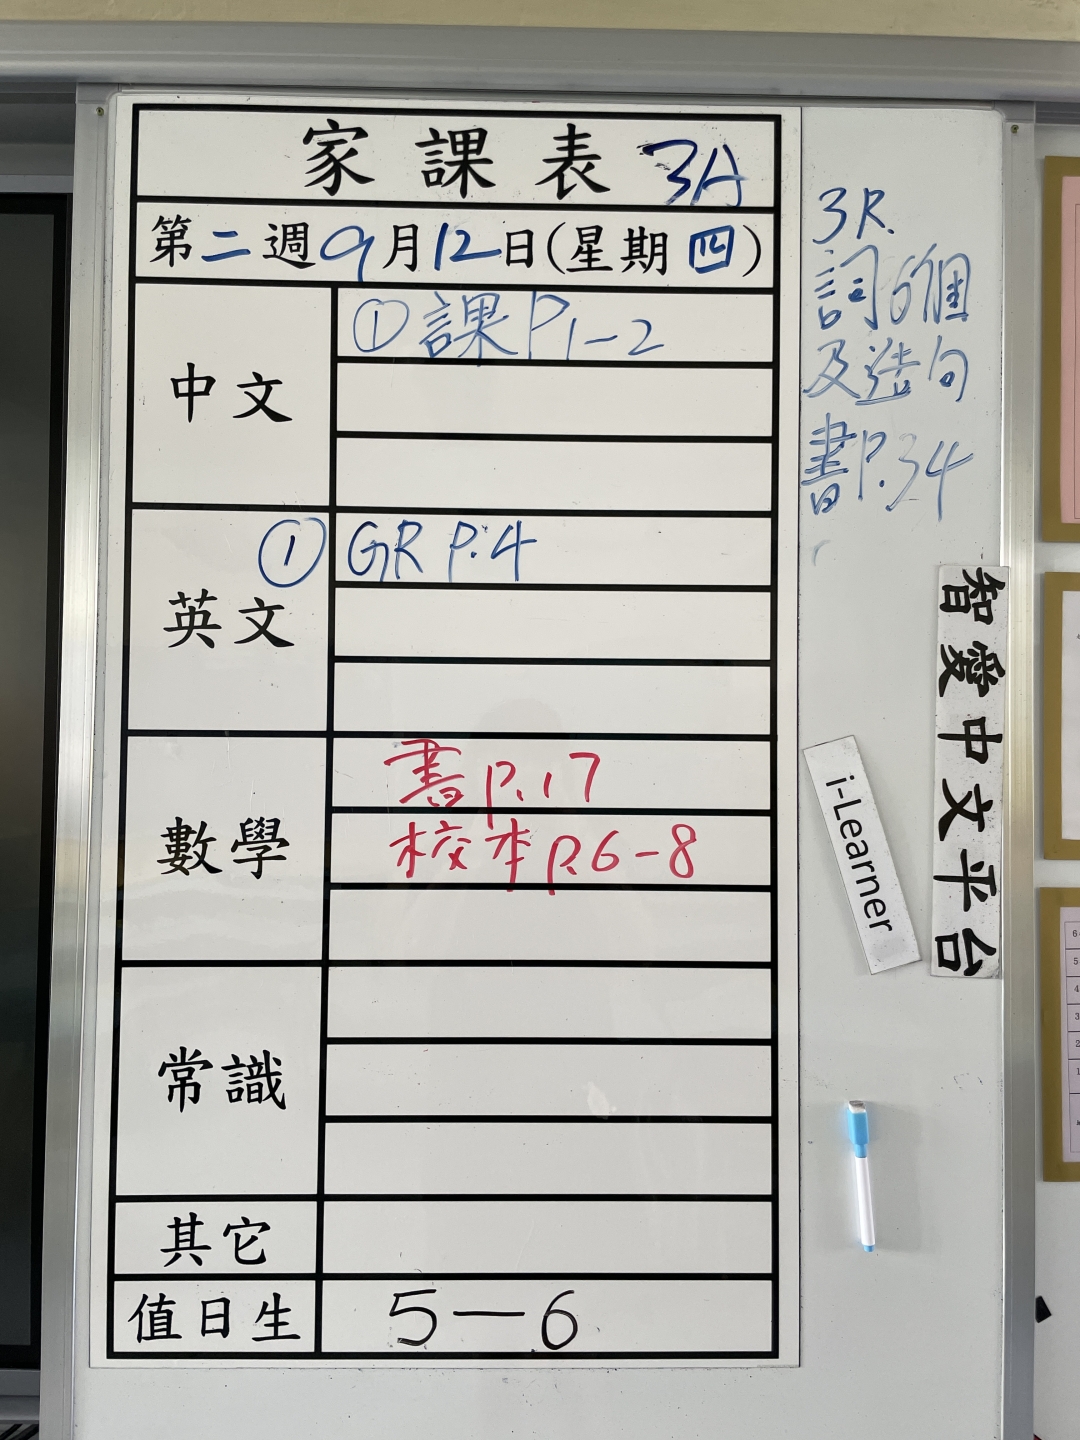 家課表 3A
第二週9月12日(星期四)
中文
①課P1-2
英文
① GR P.4
數學
書P.17
校本P.6-8
常識
其它
值日生
5-6
3R.
詞6個
及造句
書P.34
i-Learner
智愛中文平台
6
5
4
3
2
1